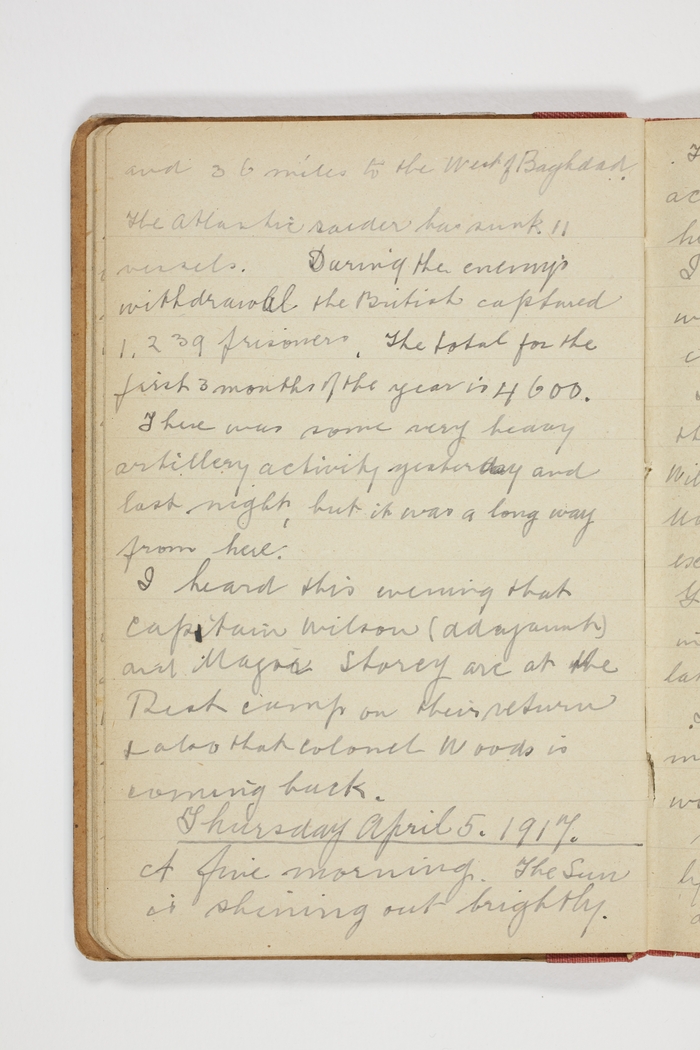 and 36 miles to the West of Baghdad.
The Atlantic raider has sunk 11
vessels. During the enemy's
withdrawal the British captured
1,239 prisoners. The total for the
first 3 months of the year is 4600.
There was some very heavy
artillery activity yesterday and
last night, but it was a long way
from here.
I heard this evening that
Captain Wilson (adajuant)
and Magor Storey are at the
Rest camp on their return
& also that colonel Woods is
coming back.
Thursday April 5. 1917.
A fine morning. The Sun
is shining out brightly.